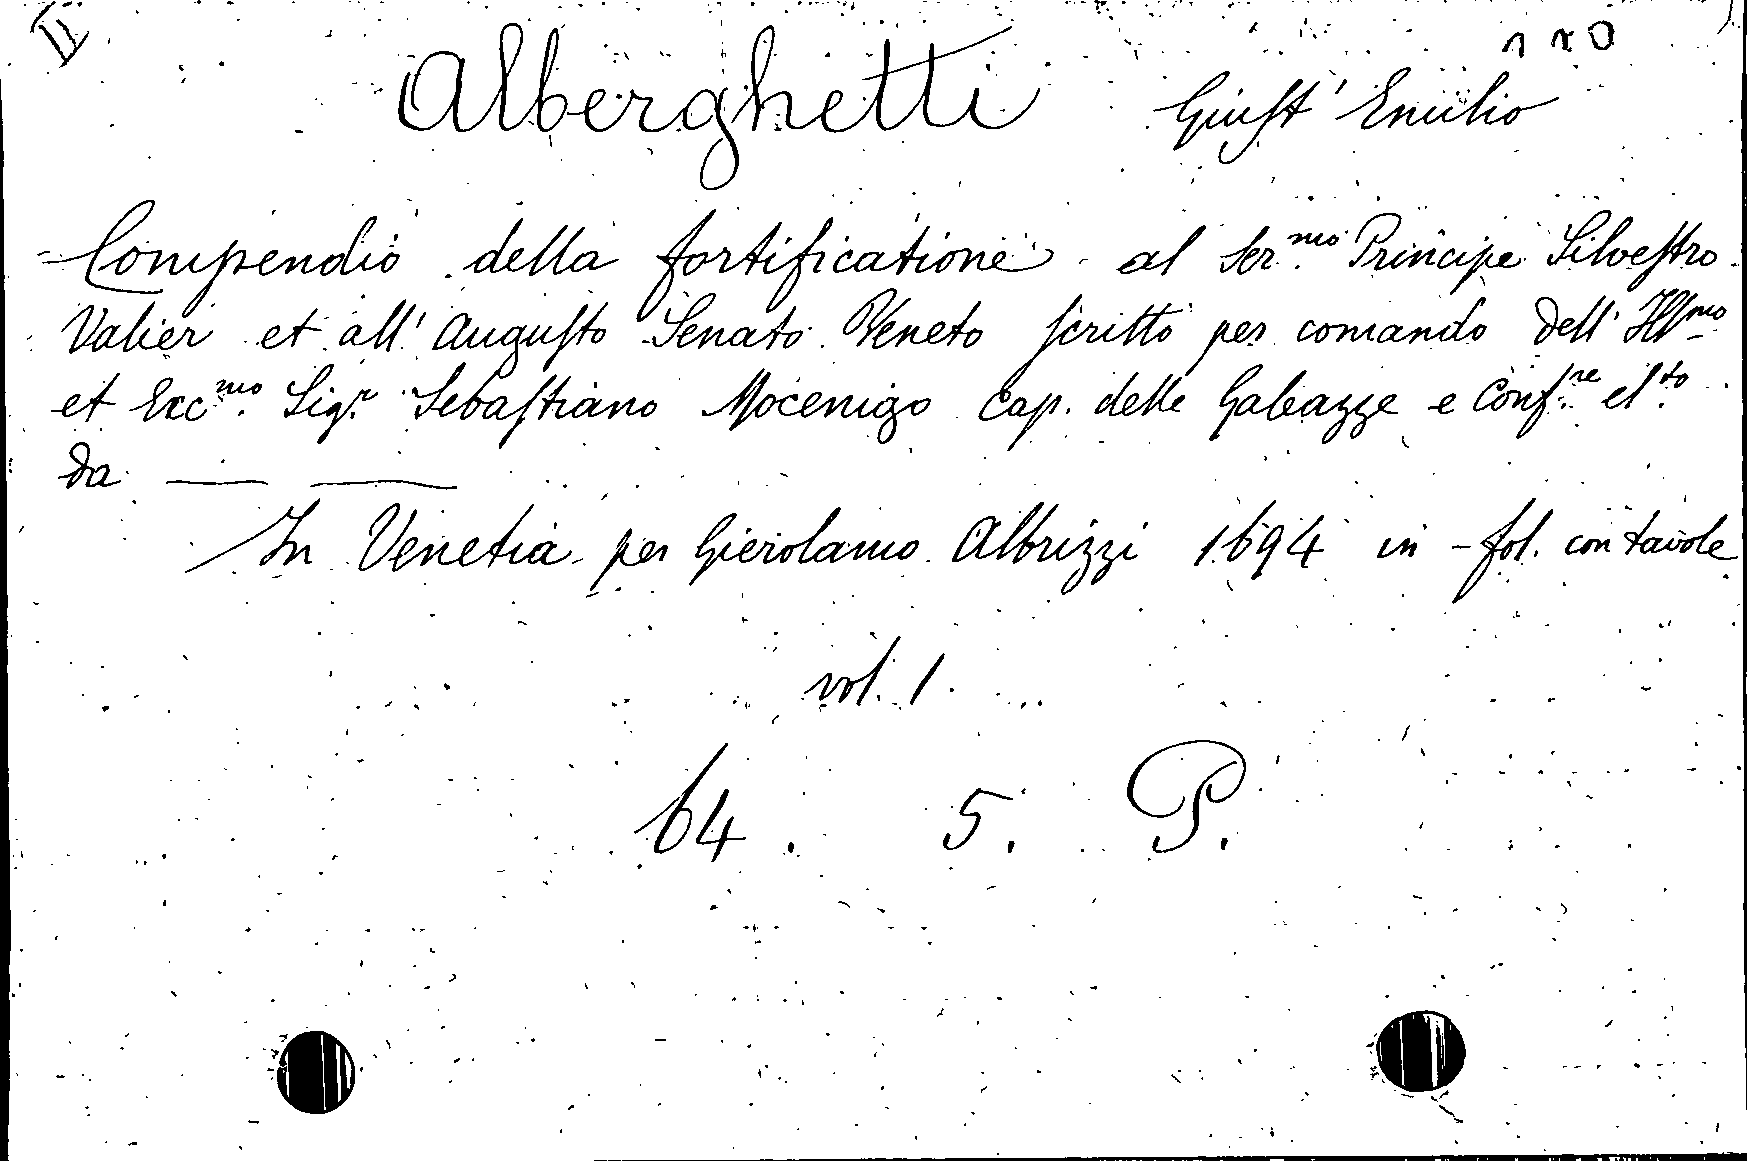 II
Alberghetti Giust' Emilio
Compendio della fortificatione al Ser.mo Principe Silvestro
Valier et all' Augusto Senato Veneto scritto per comando dell' Ill.mo
et Ecc.mo Sig.r Sebastiano Mocenigo Cap. delle Galeazze e Conf.re el.to
da
In Venetia per Gierolamo Albrizzi 1694 in-fol. con tavole
vol. 1.
64. 5. P.